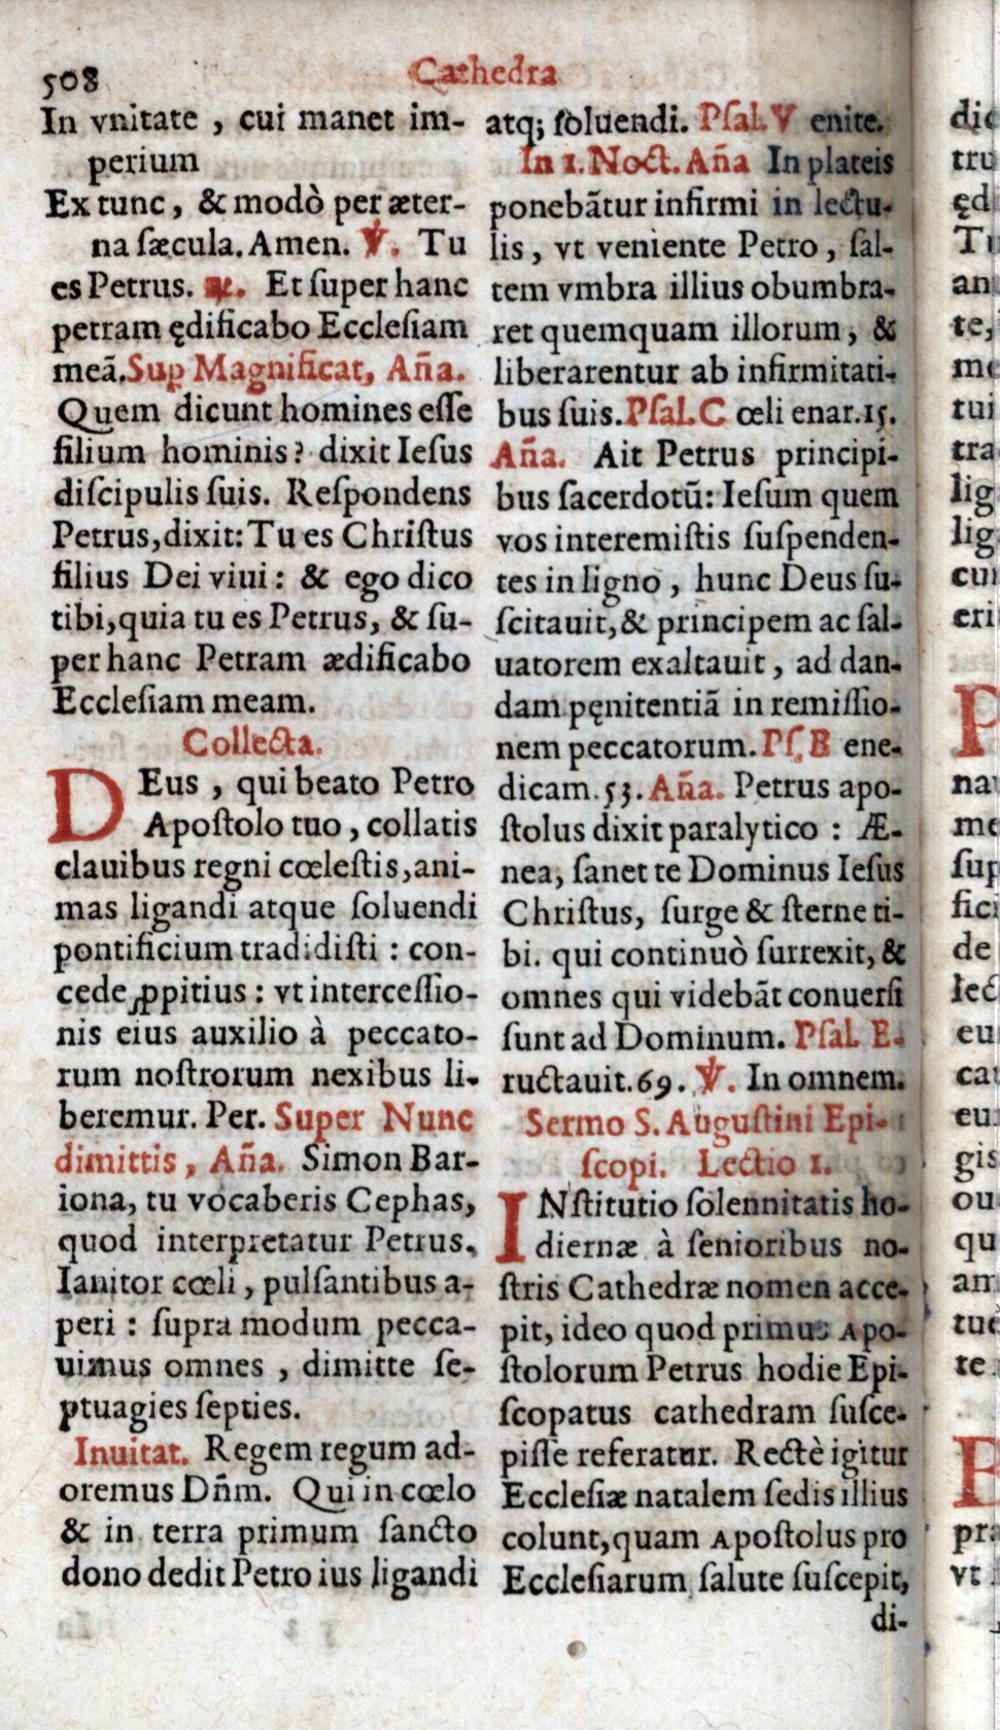 508
Cathedra
In vnitate , cui manet im-
perium
Ex tunc, & modò per æter-
na sæcula. Amen. ℣. Tu
es Petrus. ℟. Et super hanc
petram ędificabo Ecclesiam
meã. Sup Magnificat, Aña.
Quem dicunt homines esse
filium hominis? dixit Iesus
discipulis suis. Respondens
Petrus, dixit: Tu es Christus
filius Dei viui : & ego dico
tibi, quia tu es Petrus, & su-
per hanc Petram ædificabo
Ecclesiam meam.
Collecta.
DEus , qui beato Petro
Apostolo tuo , collatis
clauibus regni cœlestis, ani-
mas ligandi atque soluendi
pontificium tradidisti : con-
cede ꝓpitius : vt intercessio-
nis eius auxilio à peccato-
rum nostrorum nexibus li-
beremur. Per. Super Nunc
dimittis, Aña. Simon Bar-
iona, tu vocaberis Cephas,
quod interpretatur Petrus.
Ianitor cœli, pulsantibus a-
peri : supra modum pecca-
uimus omnes , dimitte se-
ptuagies septies.
Inuitat. Regem regum ad-
oremus Dñm. Qui in cœlo
& in terra primum sancto
dono dedit Petro ius ligandi
atq; soluendi. Psal. Venite.
In 1. Noct. Aña In plateis
ponebãtur infirmi in lectu-
lis , vt veniente Petro , sal-
tem vmbra illius obumbra-
ret quemquam illorum, &
liberarentur ab infirmitati-
bus suis. Psal. Cœli enar. 15.
Aña. Ait Petrus principi-
bus sacerdotũ: Iesum quem
vos interemistis suspenden-
tes in ligno , hunc Deus su-
scitauit, & principem ac sal-
uatorem exaltauit , ad dan-
dam pęnitentiã in remissio-
nem peccatorum. Ps. Bene-
dicam. 53. Aña. Petrus apo-
stolus dixit paralytico : Æ-
nea, sanet te Dominus Iesus
Christus, surge & sterne ti-
bi. qui continuò surrexit, &
omnes qui videbãt conuersi
sunt ad Dominum. Psal. E-
ructauit. 69. ℣. In omnem.
Sermo S. Augustini Epi-
scopi. Lectio 1.
INstitutio solennitatis ho-
diernæ à senioribus no-
stris Cathedræ nomen acce-
pit, ideo quod primus Apo-
stolorum Petrus hodie Epi-
scopatus cathedram susce-
pisse referatur. Rectè igitur
Ecclesiæ natalem sedis illius
colunt, quam Apostolus pro
Ecclesiarum salute suscepit,
di-